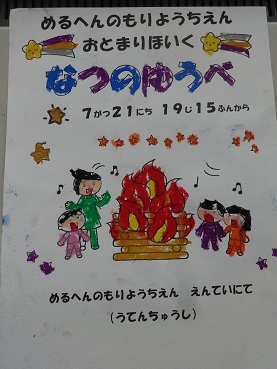 めるへんのもりようちえん
おとまりほいく
なつのゆうべ
7がつ21にち 19じ15ふんから
めるへんのもりようちえん えんていにて
(うてんちゅうし)